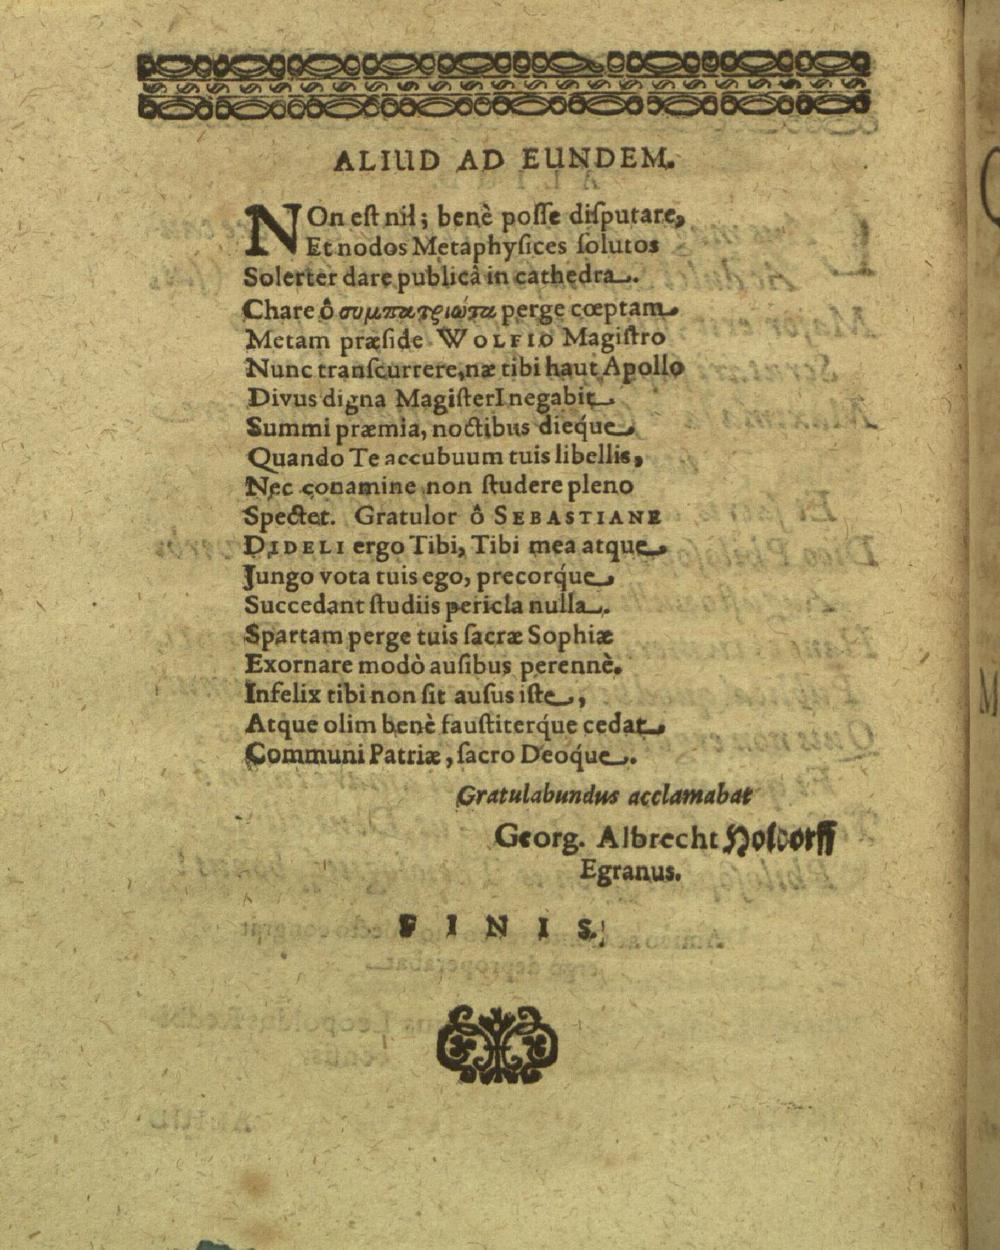 ALIUD AD EUNDEM.
NOn eſt nil; benè poſſe diſputare,
Et nodos Metaphyſices ſolutos
Solerter dare publicâ in cathedra.
Chare ô συμπατριῶτα perge cœptam
Metam præſide WOLFIO Magiſtro
Nunc tranſcurrere, næ tibi haut Apollo
Divus digna MagiſterI negabit
Summi præmia, noctibus diéque
Quando Te accubuum tuis libellis,
Nec conamine non ſtudere pleno
Spectet. Gratulor ô SEBASTIANE
DIDELI ergo Tibi, Tibi mea atque
Jungo vota tuis ego, precorq́ue
Succedant ſtudiis pericla nulla.
Spartam perge tuis ſacræ Sophiæ
Exornare modò auſibus perennè.
Infelix tibi non ſit auſus iſte,
Atque olim benè fauſtiterq́ue cedat
Communi Patriæ, ſacro Deoq́ue.
Gratulabundus acclamabat
Georg. Albrecht
Egranus.
FINIS.